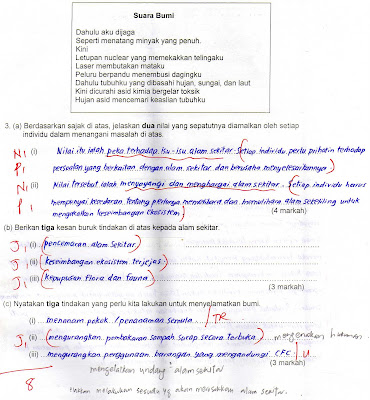 Suara Bumi
Dahulu aku dijaga
Seperti menatang minyak yang penuh.
Kini
Letupan nuclear yang memekakkan telingaku
Laser membutakan mataku
Peluru berpandu menembusi dagingku
Dahulu tubuhku yang dibasahi hujan, sungai, dan laut
Kini dicurahi asid kimia bergelar toksik
Hujan asid mencemari keaslian tubuhku
3. (a) Berdasarkan sajak di atas, jelaskan dua nilai yang sepatutnya diamalkan oleh setiap
individu dalam menangani masalah di atas.
N1 (i) Nilai itu ialah peka terhadap isu-isu alam sekitar. Setiap individu perlu prihatin terhadap
P1 persoalan yang berkaitan dengan alam sekitar dan berusaha menyelesaikannya
N1 (ii) Nilai tersebut ialah menyayangi dan menghargai alam sekitar. Setiap individu harus
P1 mempunyai kesedaran tentang perlunya memelihara alam sekeliling untuk
mengekalkan keseimbangan ekosistem
(4 markah)
(b) Berikan tiga kesan buruk tindakan di atas kepada alam sekitar.
J1 (i) pencemaran alam sekitar
J1 (ii) keseimbangan ekosistem terjejas
J1 (iii) kepupusan flora dan fauna
(3 markah)
(c) Nyatakan tiga tindakan yang perlu kita lakukan untuk menyelamatkan bumi.
(i) menanam pokok / penanaman semula / TR
J1 (ii) mengurangkan pembakaran sampah sarap secara terbuka mengenakan hukuman
(iii) mengurangkan penggunaan barangan yang mengandungi CFC / U
(3 markah)
mengetatkan undang alam sekitar
8
melakukan sesuatu yg akan merosakkan alam sekitar.